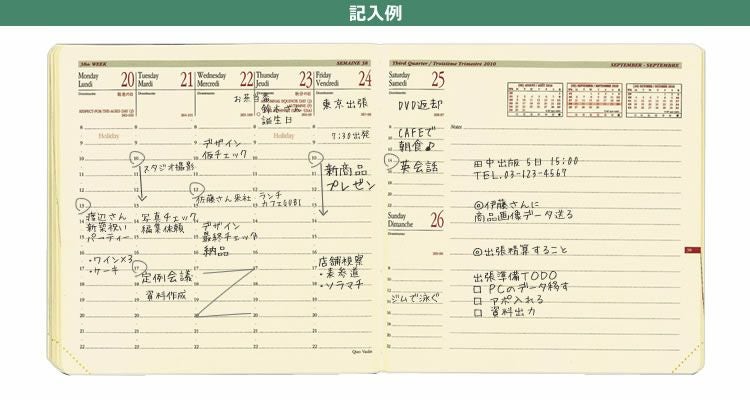 記入例
38th WEEK
SEMAINE 38
Monday 20
Lundi
Dominante
RESPECT-FOR-THE-AGED DAY (J)
Holiday
13
渡辺さん
新築祝い
パーティー
・ワイン×3
・ケーキ
Tuesday 21
Mardi
Dominante
10
スタジオ撮影
写真チェック
編集依頼
17
定例会議
資料作成
Wednesday 22
Mercredi
Dominante
デザイン
仮チェック
12
佐藤さん来社
デザイン
最終チェック
納品
Thursday 23
Jeudi
お弁当
誕生日
Holiday
ランチ
カフェGOBI
Friday 24
Vendredi
Dominante
東京出張
7:30出発
10
新商品
プレゼン
店舗視察
・表参道
・ソラマチ
Quo Vadis
Third Quarter / Troisième Trimestre 2010
SEPTEMBER - SEPTEMBRE
Saturday 25
Samedi
Dominante
DVD返却
CAFEで
朝食♪
14
英会話
Sunday 26
Dimanche
Dominante
ジムで泳ぐ
Notes
田中出版 5日 15:00
TEL.03-123-4567
@伊藤さんに
商品画像データ送る
@出張精算すること
出張準備TODO
□ PCのデータ移す
□ アポ入れる
□ 資料出力